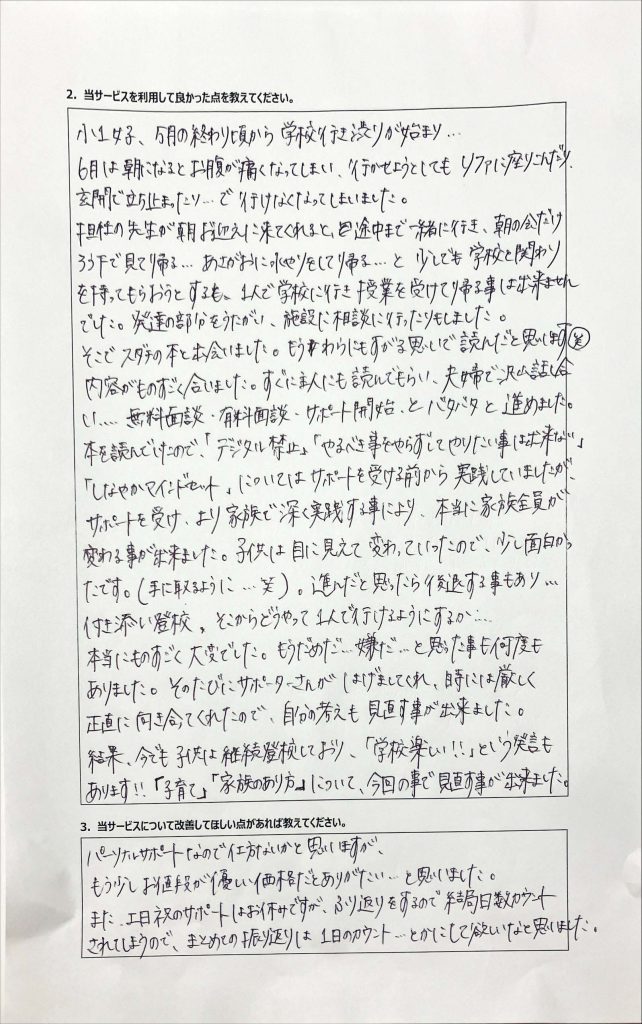 2. 当サービスを利用して良かった点を教えてください。
小1女子、5月の終わり頃から学校行き渋りが始まり…
6月は朝になるとお腹が痛くなってしまい、行かせようとしてもソファに座りこんだり、
玄関で立ち止まったり…で行けなくなってしまいました。
担任の先生が朝お迎えに来てくれると、途中まで一緒に行き、朝の会だけ
ろう下で見て帰る…あさがおに水やりをして帰る…と少しでも学校と関わり
を持ってもらおうとするも、1人で学校に行き授業を受けて帰る事は出来ません
でした。発達の部分をうたがい、施設に相談に行ったりもしました。
そこでスダチの本と出会いました。もうわらにもすがる思いで読んだと思います(笑)
内容がものすごく合いました。すぐに主人にも読んでもらい、夫婦で沢山話し合
い…、無料面談・有料面談・サポート開始、とバタバタと進めました。
本を読んでいたので、「デジタル禁止」「やるべき事をやらずしてやりたい事は出来ない」
「しなやかマインドセット」についてはサポートを受ける前から実践していましたが、
サポートを受け、より家族で深く実践する事により、本当に家族全員が
変わる事が出来ました。子供は目に見えて変わっていったので、少し面白かっ
たです。(手に取るように…笑)。進んだと思ったら後退する事もあり…
付き添い登校、そこからどうやって1人で行けるようにするか…
本当にものすごく大変でした。もうだめだ…嫌だ…と思った事も何度も
ありました。そのたびにサポーターさんがはげましてくれ、時には厳しく
正直に向き合ってくれたので、自分の考えも見直す事が出来ました。
結果、今でも子供は継続登校しており、「学校楽しい!!」という発言も
あります!!「子育て」「家族のあり方」について、今回の事で見直す事が出来ました。
3. 当サービスについて改善してほしい点があれば教えてください。
パーソナルサポートなので仕方ないかと思いますが、
もう少しお値段が優しい価格だとありがたい…と思いました。
また、土日祝のサポートはお休みですが、ふり返りをするので結局日数カウント
されてしまうので、まとめての振り返りは1日のカウント…とかにして欲しいなと思いました。